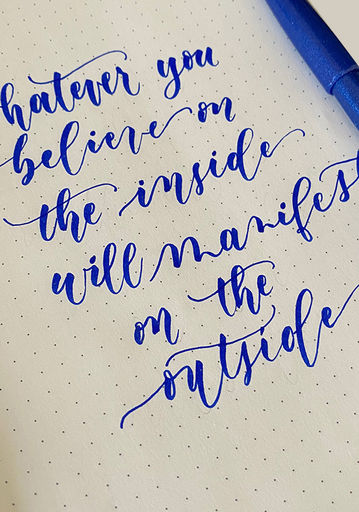 hatever you
believe on
the inside
will manifest
on the
outside